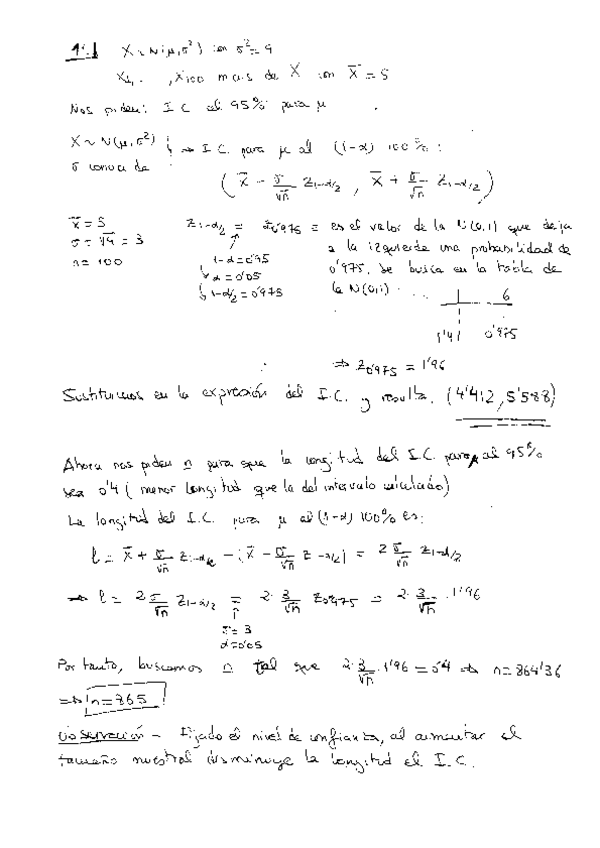 1.1 X ~ N(μ, σ²) con σ² = 9
X₁, . , X₁₀₀ m.a.s de X con X̄ = 5
Nos piden: I.C. al 95% para μ
X ~ N(μ, σ²) } ⇒ I.C. para μ al (1-α) 100%:
σ conocida
( X̄ - σ/√n Z₁₋α/₂ , X̄ + σ/√n Z₁₋α/₂ )
x̄ = 5
σ = √9 = 3
n = 100
Z₁₋α/₂ = Z₀'₉₇₅ = es el valor de la N(0,1) que deja
1-α = 0'95
α = 0'05
1-α/₂ = 0'975
a la izquierda una probabilidad de
0'975. Se busca en la tabla de
la N(0,1) . . .
6
1'9 0'975
⇒ Z₀'₉₇₅ = 1'96
Sustituimos en la expresión del I.C. y resulta. (4'412, 5'588)
Ahora nos piden n para que la longitud del I.C. para μ al 95%
sea 0'4 (menor longitud que la del intervalo calculado)
La longitud del I.C. para μ al (1-α) 100% es:
l = X̄ + σ/√n Z₁₋α/₂ - (X̄ - σ/√n Z₁₋α/₂) = 2 σ/√n Z₁₋α/₂
⇒ l = 2 σ/√n Z₁₋α/₂ = 2· 3/√n Z₀'₉₇₅ = 2· 3/√n · 1'96
σ = 3
α = 0'05
Por tanto, buscamos n tal que 2· 3/√n · 1'96 = 0'4 ⇒ n = 864'36
⇒ n = 865
Observación - Fijado el nivel de confianza, al aumentar el
tamaño muestral disminuye la longitud el I.C.